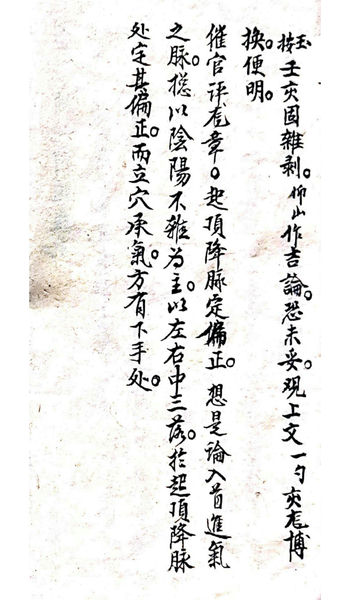 玉按壬亥固雜剥。仰山作吉論。恐未妥。观上文一勺亥尨博
换。便明。
催官评尨章。起頂降脉定偏正。想是論入首進氣
之脉。揔以陰陽不雜為主。以左右中三落。於起頂降脉
处定其偏正。而立穴承氣。方有下手处。